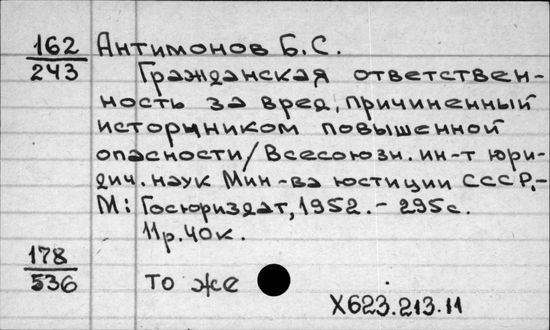 162
243
Антимонов Б.С.
Гражданская ответствен-
ность за вред, причиненный
источником повышенной
опасности/Всесоюзн. ин-т юри-
дич. наук Мин-ва юстиции СССР.-
М: Госюриздат, 1952. - 295с.
11р.40к.
178
536
то же
Х623.213.11